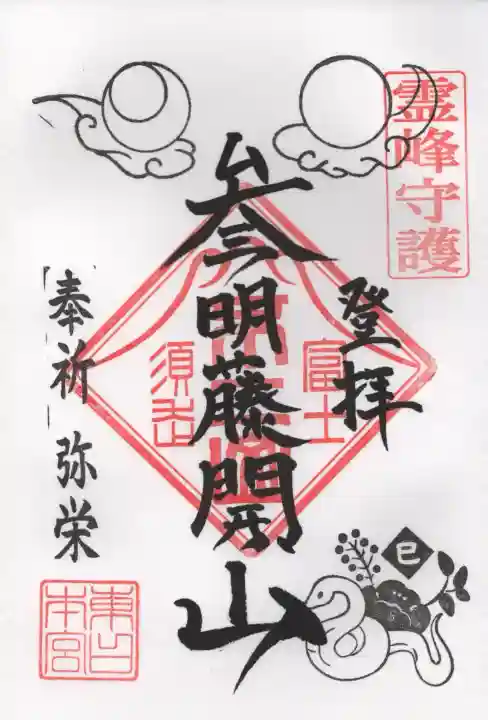 霊峰守護
登拝
参明藤開山
冨士
須走
奉祈 弥栄
東口
本宮
巳